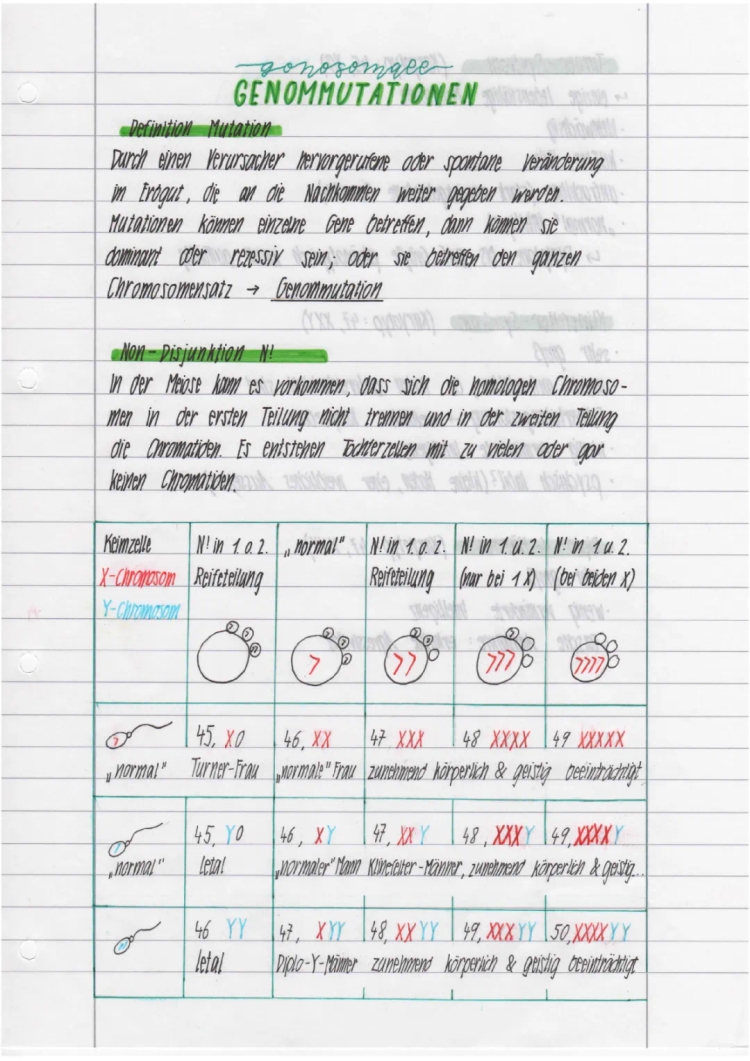 gonosomale
GENOMMUTATIONEN
Definition Mutation
Durch einen Verursacher hervorgerufene oder spontane Veränderung
im Erbgut, die an die Nachkommen weiter gegeben werden.
Mutationen können einzelne Gene betreffen, dann können sie
dominant oder rezessiv sein; oder sie betreffen den ganzen
Chromosomensatz → Genommutation
Non-Disjunktion N!
In der Meiose kann es vorkommen, dass sich die homologen Chromoso-
men in der ersten Teilung nicht trennen und in der zweiten Teilung
die Chromatiden. Es entstehen Tochterzellen mit zu vielen oder gar
keinen Chromatiden.
Keimzelle N! in 1 o. 2. „normal" N! in 1 o. 2. N! in 1 u. 2. N! in 1 u. 2.
X-Chromosom Reifeteilung Reifeteilung (nur bei 1 X) (bei beiden X)
Y-Chromosom
45, XO 46, XX 47 XXX 48 XXXX 49 XXXXX
„normal" Turner-Frau „normale" Frau zunehmend körperlich & geistig beeinträchtigt
45, YO 46, XY 47, XXY 48, XXXY 49, XXXXY
„normal" letal „normaler" Mann Klinefelter-Männer, zunehmend körperlich & geistig...
46 YY 47, XYY 48, XXYY 49, XXXYY 50, XXXXYY
letal Diplo-Y-Männer zunehmend körperlich & geistig beeinträchtigt